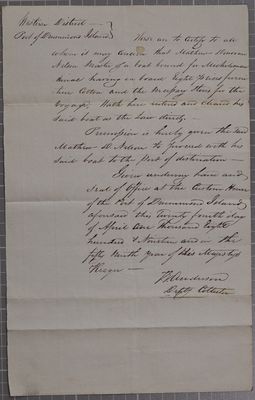 Western District —
Port of Drummond Island }
These are to Certify to all
whom it may Concern that Mathew
Nelson Master of a boat bound for Michilimac
having on board Eight
and the Necessary Stores for the
Voyage. Hath here entered and Cleared his
said boat as the Law directs.
Permission is hereby given the said
Mathew D. Nelson to proceed with his
said boat to the Port of destination —
Given under my hand and
Seal of Office at the Custom House
of the Port of Drummond Island
aforesaid this twenty fourth day
of April One thousand Eight
hundred & Nineteen and in the
fifty Ninth year of His Majestys
Reign —
Anderson
Depty Collector